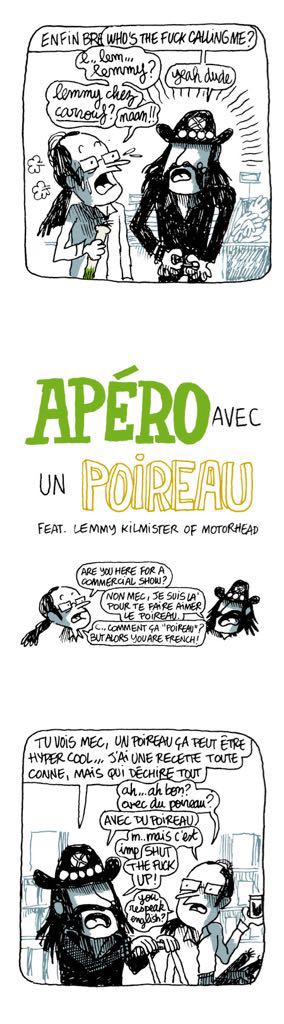 ENFIN BREF WHO'S THE FUCK CALLING ME?
L.. lem...
lemmy?
yeah dude
lemmy chez
carrouf? naan!!
APÉRO AVEC
UN POIREAU
FEAT. LEMMY KILMISTER OF MOTORHEAD
ARE YOU HERE FOR A
COMMERCIAL SHOW?
NON MEC, JE SUIS LÀ
POUR TE FAIRE AIMER
LE POIREAU.
C... COMMENT ÇA "POIREAU"?
BUT ALORS YOU ARE FRENCH!
TU VOIS MEC, UN POIREAU ÇA PEUT ÊTRE
HYPER COOL... J'AI UNE RECETTE TOUTE
CONNE, MAIS QUI DÉCHIRE TOUT
ah...ah bon?
avec du poireau?
AVEC DU POIREAU
m..mais c'est
imp SHUT
THE FUCK
UP!
you
respeak
english?